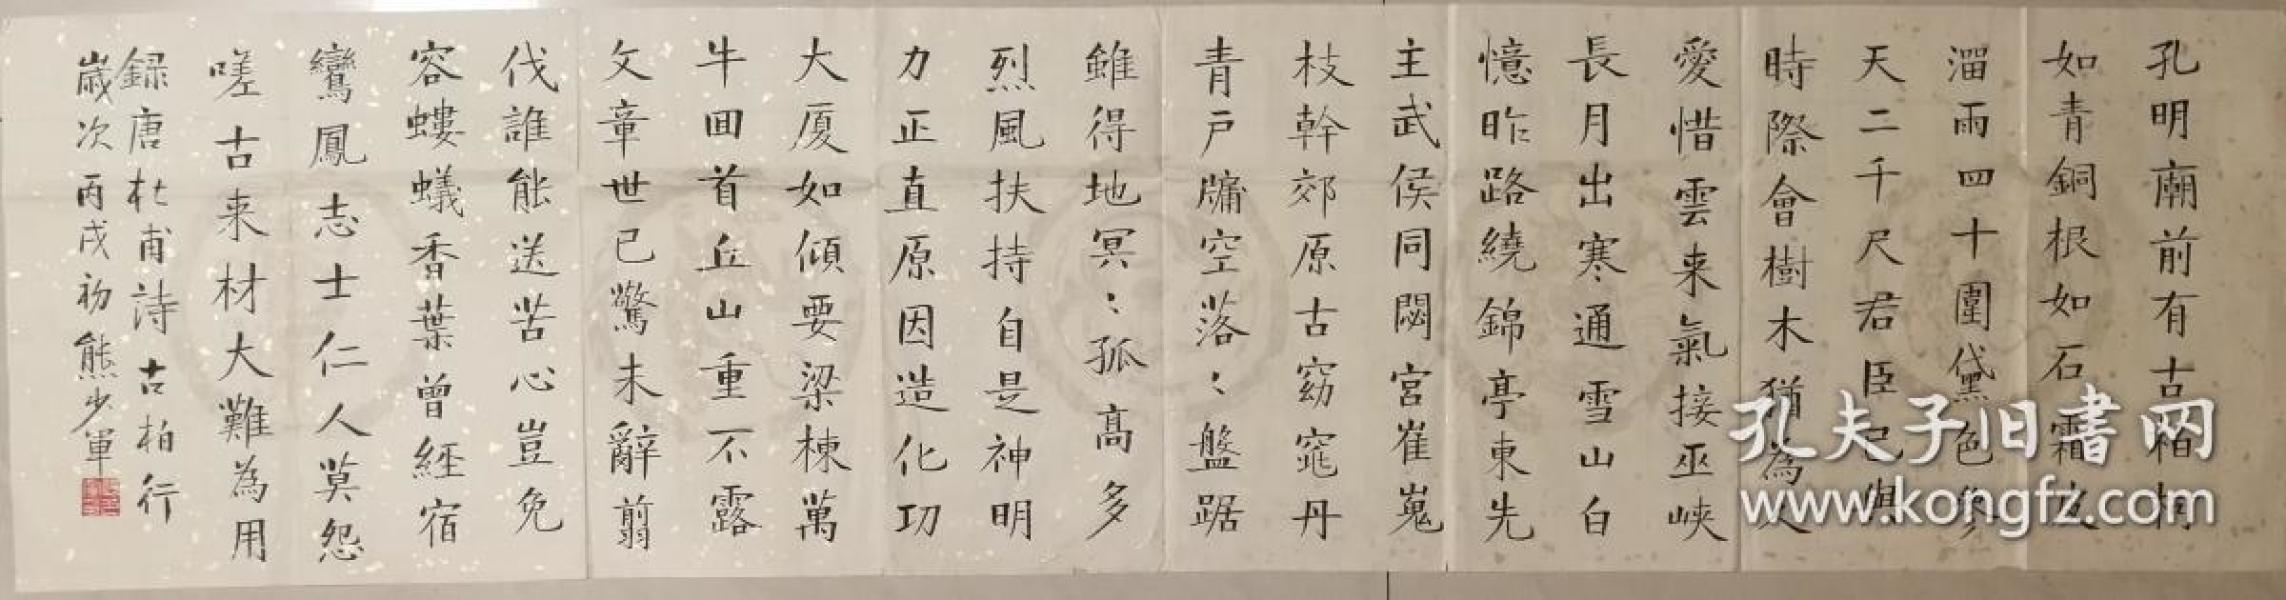 孔明廟前有古柏柯
如青銅根如石霜皮
溜雨四十圍黛色參
天二千尺君臣已與
時際會樹木猶為人
愛惜雲来氣接巫峽
長月出寒通雪山白
憶昨路繞錦亭東先
主武侯同閟宮崔嵬
枝幹郊原古窈窕丹
青戶牖空落〻盤踞
雖得地冥〻孤高多
烈風扶持自是神明
力正直原因造化功
大廈如傾要梁棟萬
牛回首丘山重不露
文章世已驚未辭翦
伐誰能送苦心豈免
容螻蟻香葉曾經宿
鸞鳳志士仁人莫怨
嗟古来材大難為用
録唐杜甫詩古柏行
歲次丙戌初熊少軍
孔夫子旧書网
www.kongfz.com